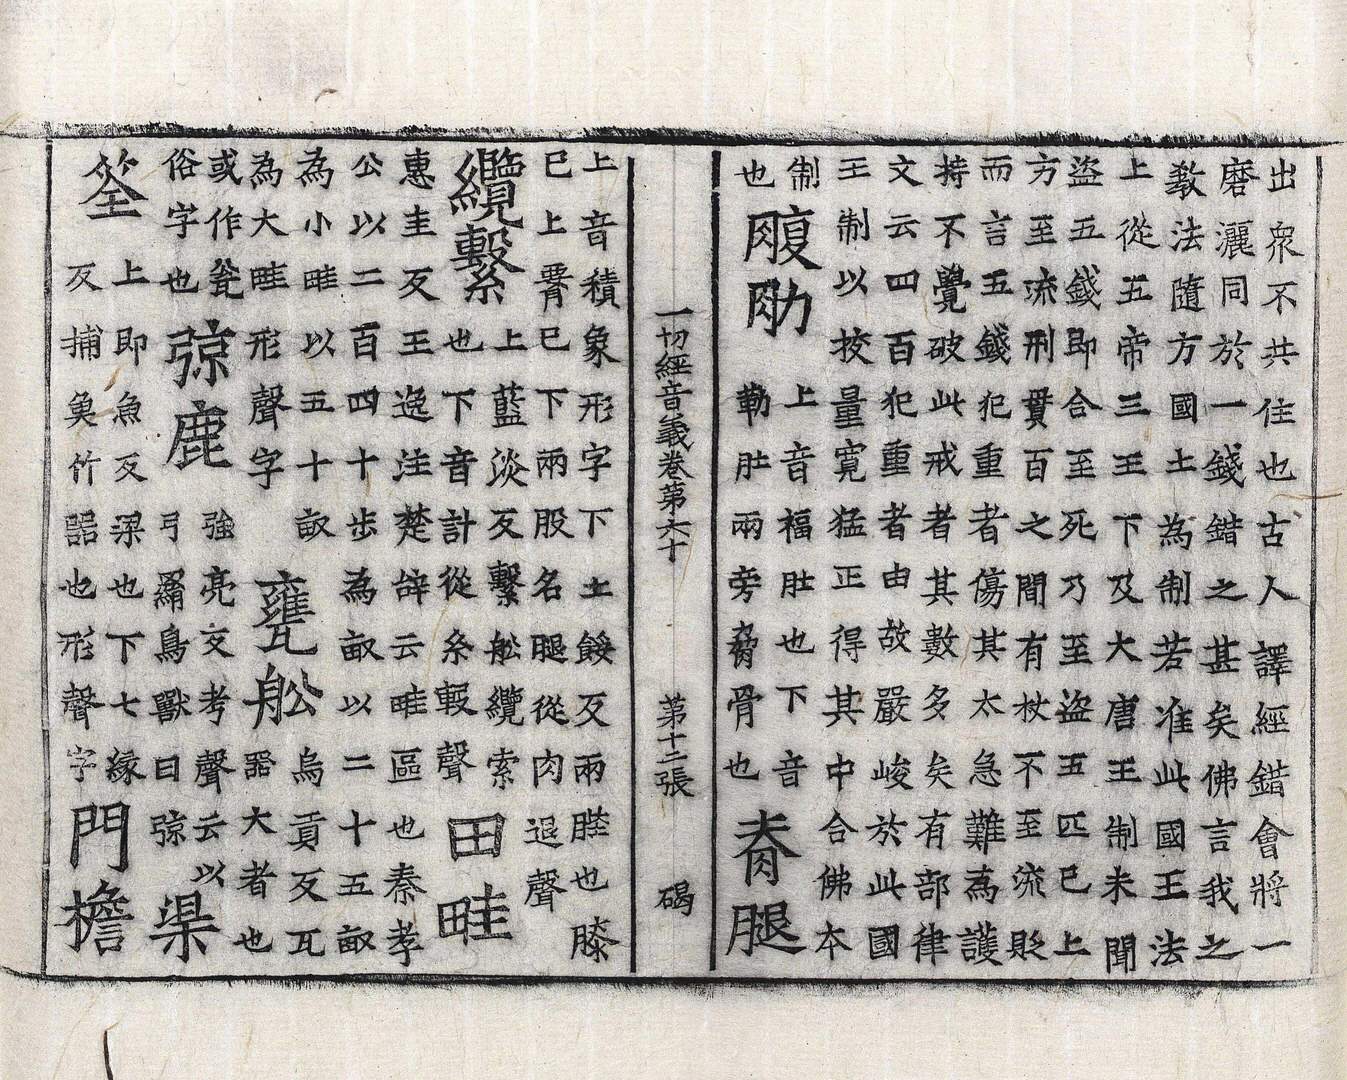 出衆不共住也古人譯經錯會將一
磨灑同於一錢錯之甚矣佛言我之
敎法隨方國土為制若准此國王法
上從五帝三王下及大唐王制未聞
盜五錢即合至死乃至盜五匹已上
方至流刑貫百之間有杖不至流貶
而言五錢犯重者傷其太急難為護
持不覺破此戒者其數多矣有部律
文云四百犯重者由故嚴峻於此國
王制以挍量寬猛正得其中合佛本
制也腹肋上音福肚也下音勒肚兩旁脅骨也脊腿
一切經音義卷第六十 第十三張 碣
上音積象形字下土餧反兩䏶也膝已上䏿已下兩股名腿從肉退聲
纜繫上藍淡反繫舩纜索也下音計從糸毄聲田畦
惠圭反王逸注楚辞云畦區也秦孝公以二百四十步為畝以二十五畝
為小畦以五十畝為大畦形聲字甕舩烏貢反瓦器大者也
或作瓮俗字也弶鹿強亮反考聲云以弓罥鳥獸曰弶渠
筌上即魚反梁也下七緣反捕魚竹器也形聲字門檐